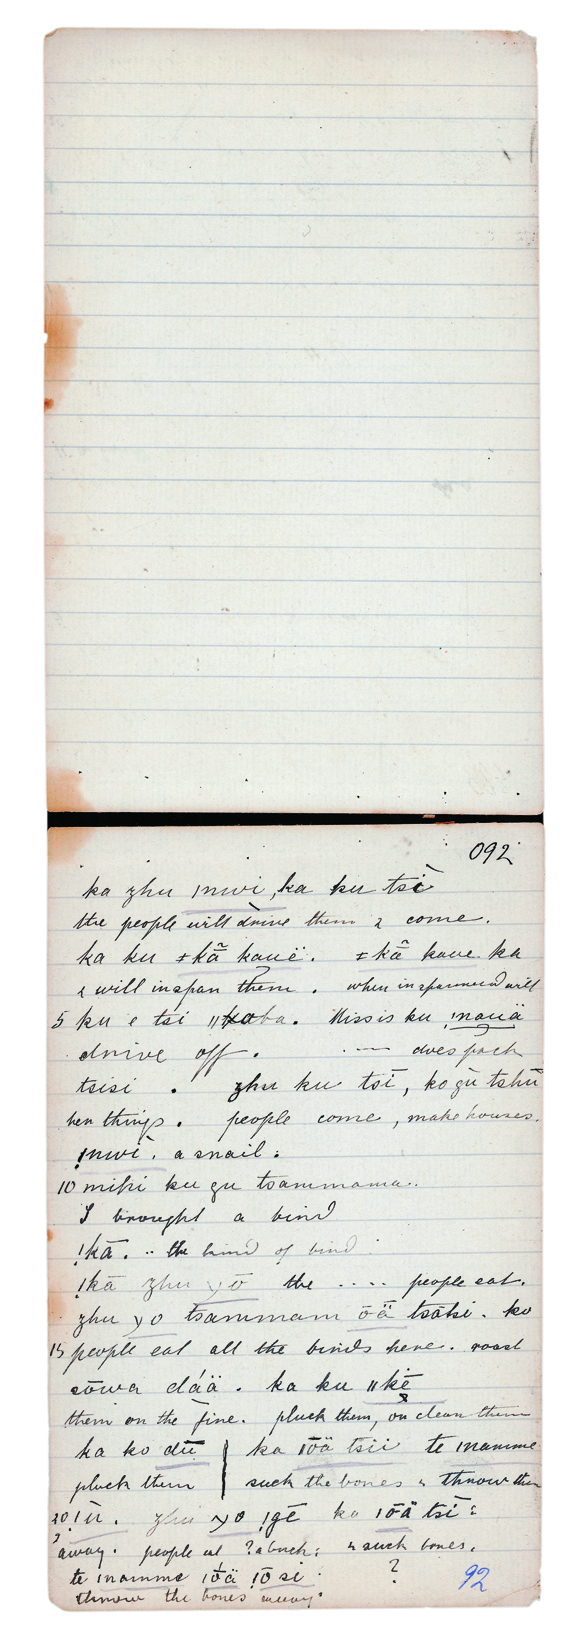 092
ka zhu ǀnwi, ka ku tsi
the people will drive them & come.
ka ku ǂkã kauë. ǂkã kaue ka
& will inspan them. when inspanned will
5 ku e tsi ǁkaba. Missis ku ǃnauä
drive off. does pack
tsisi. zhu ku tsī, ko gù tshū
her things. people come, make houses.
ǃnwì. a snail.
10 mihi ku gu tsammama..
I brought a bird
ǃkā. .. the kind of bird
ǃkā zhu yō the .... people eat.
zhu yo tsammam ōä tsāhi. ko
15 people eat all the birds here. roast
sōwa dáä. ka ku ǁkē
them on the fire. pluck them, or clean them
ka ko dū ka ǀōä tsii te ǀnamme
pluck them suck the bones & throw them
20 ǃū. zhu yo ǃgē ka ǀōä tsī:
away. people eat ? a buck: & suck bones.
te ǀnamme ǀōä ǃō si ?
throw the bones away.
92